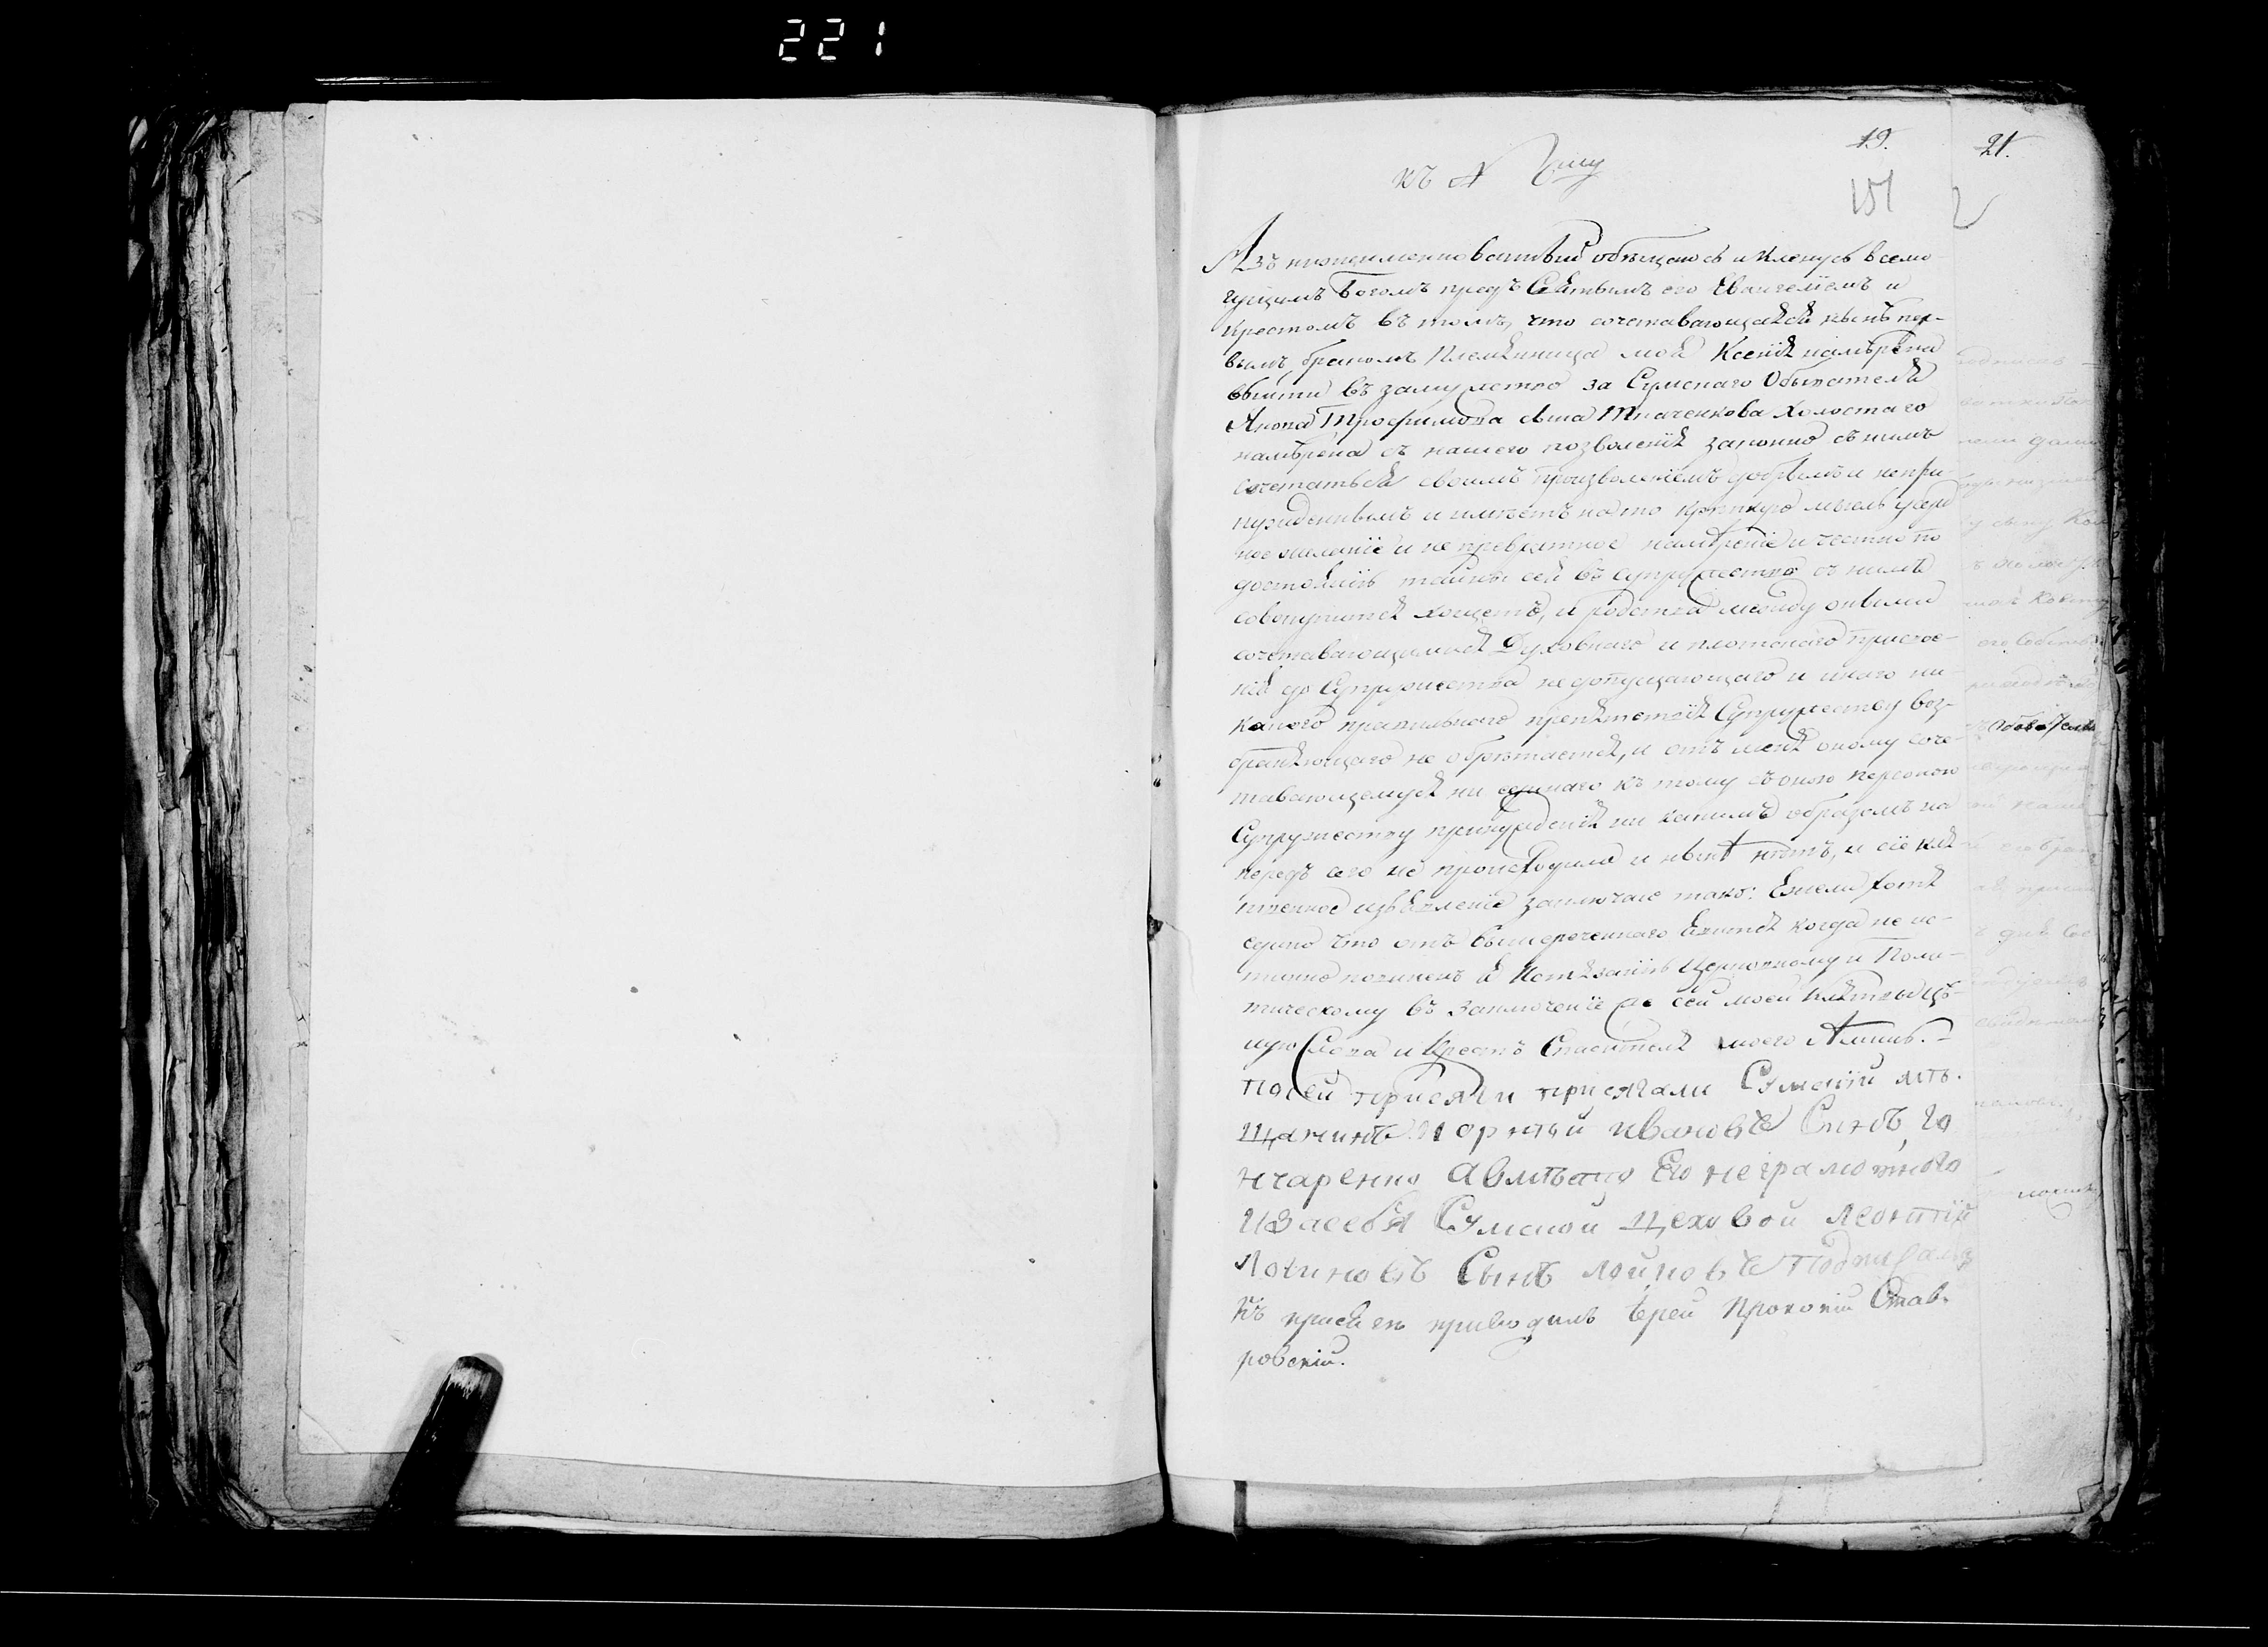 221
19. 21.
къ №
151
Азъ нижеименованный обѣщаюсь и кленусь всемо
гущимъ Богомъ предъ Святымъ его Евангелiемъ и
Крестомъ въ томъ, что сочетавающаяся нынѣ пер-
вымъ бракомъ племянница моя Ксенiя намѣрена
выйти въ замужство за Сумскаго Обывателя
Трофимова сына Ткаченкова холостаго
намѣрена съ нашего позволенiя законно съ нимъ
сочетаться своимъ произволенiемъ добрымъ и непри-
нужденнымъ и имѣетъ на то крѣпкую мысль усерд
ное желанiе и не превратное намѣренiе и честно по
достоянiю тайны сей въ супружество съ нимъ
совокупится хощетъ, и родства между оными
сочетавающимися Духовнаго и плотскаго присвое-
нiя до Супружества недопущающаго и инаго ни-
какого правильнаго препятствiя Супружеству воз-
браняющаго не обрѣтается, и отъ меня оному соче-
тавающемуся ни единаго къ тому съ оною персоною
Супружеству принужденiя ни какимъ образомъ на
передъ сего не происходило и нынѣ нѣтъ, и сiе кля-
твенное изъявленiе заключаю тако: Ежели хотя
едино что отъ вышереченнаго явится когда не ис-
тинно повиненъ я Истязанiю Церковному и Поли-
тическому въ заключенiе же сей моей клятвы цѣ-
лую Слова и Крестъ Спасителя моего Аминь.
По сей присяги присягали Сумскiй мѣ-
щанинъ Ивановъ Синъ, Го
нчаренко а вмѣсто Его неграмотнаго
и за себя Сумской цеховой Леонтiй
Логиновъ Сынъ подписался
Къ присягѣ приводилъ Iерей Прокопiй Став-
ровскiй.